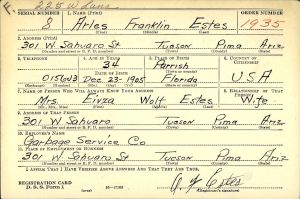 225 W Luns
SERIAL NUMBER 1. NAME (Print) ORDER NUMBER
8 Arles Franklin Estes 1935
(First) (Middle) (Last)
2. ADDRESS (Print)
301 W Sahuaro St Tucson Pima Ariz
3. TELEPHONE 4. AGE IN YEARS 5. PLACE OF BIRTH 6. COUNTRY OF CITIZENSHIP
34 Parrish
DATE OF BIRTH
0156W3 Dec 23-1905 Florida USA
7. NAME OF PERSON WHO WILL ALWAYS KNOW YOUR ADDRESS 8. RELATIONSHIP OF THAT PERSON
Mrs. Eivza Wolf Estes Wife
9. ADDRESS OF THAT PERSON
301 W Sahuaro Tucson Pima Ariz
10. EMPLOYER'S NAME
Garbage Service Co
11. PLACE OF EMPLOYMENT OR BUSINESS
301 W Sahuaro St Tucson Pima Ariz
I AFFIRM THAT I HAVE VERIFIED ABOVE ANSWERS AND THAT THEY ARE TRUE.
REGISTRATION CARD
D. S. S. Form 1 A. F. Estes